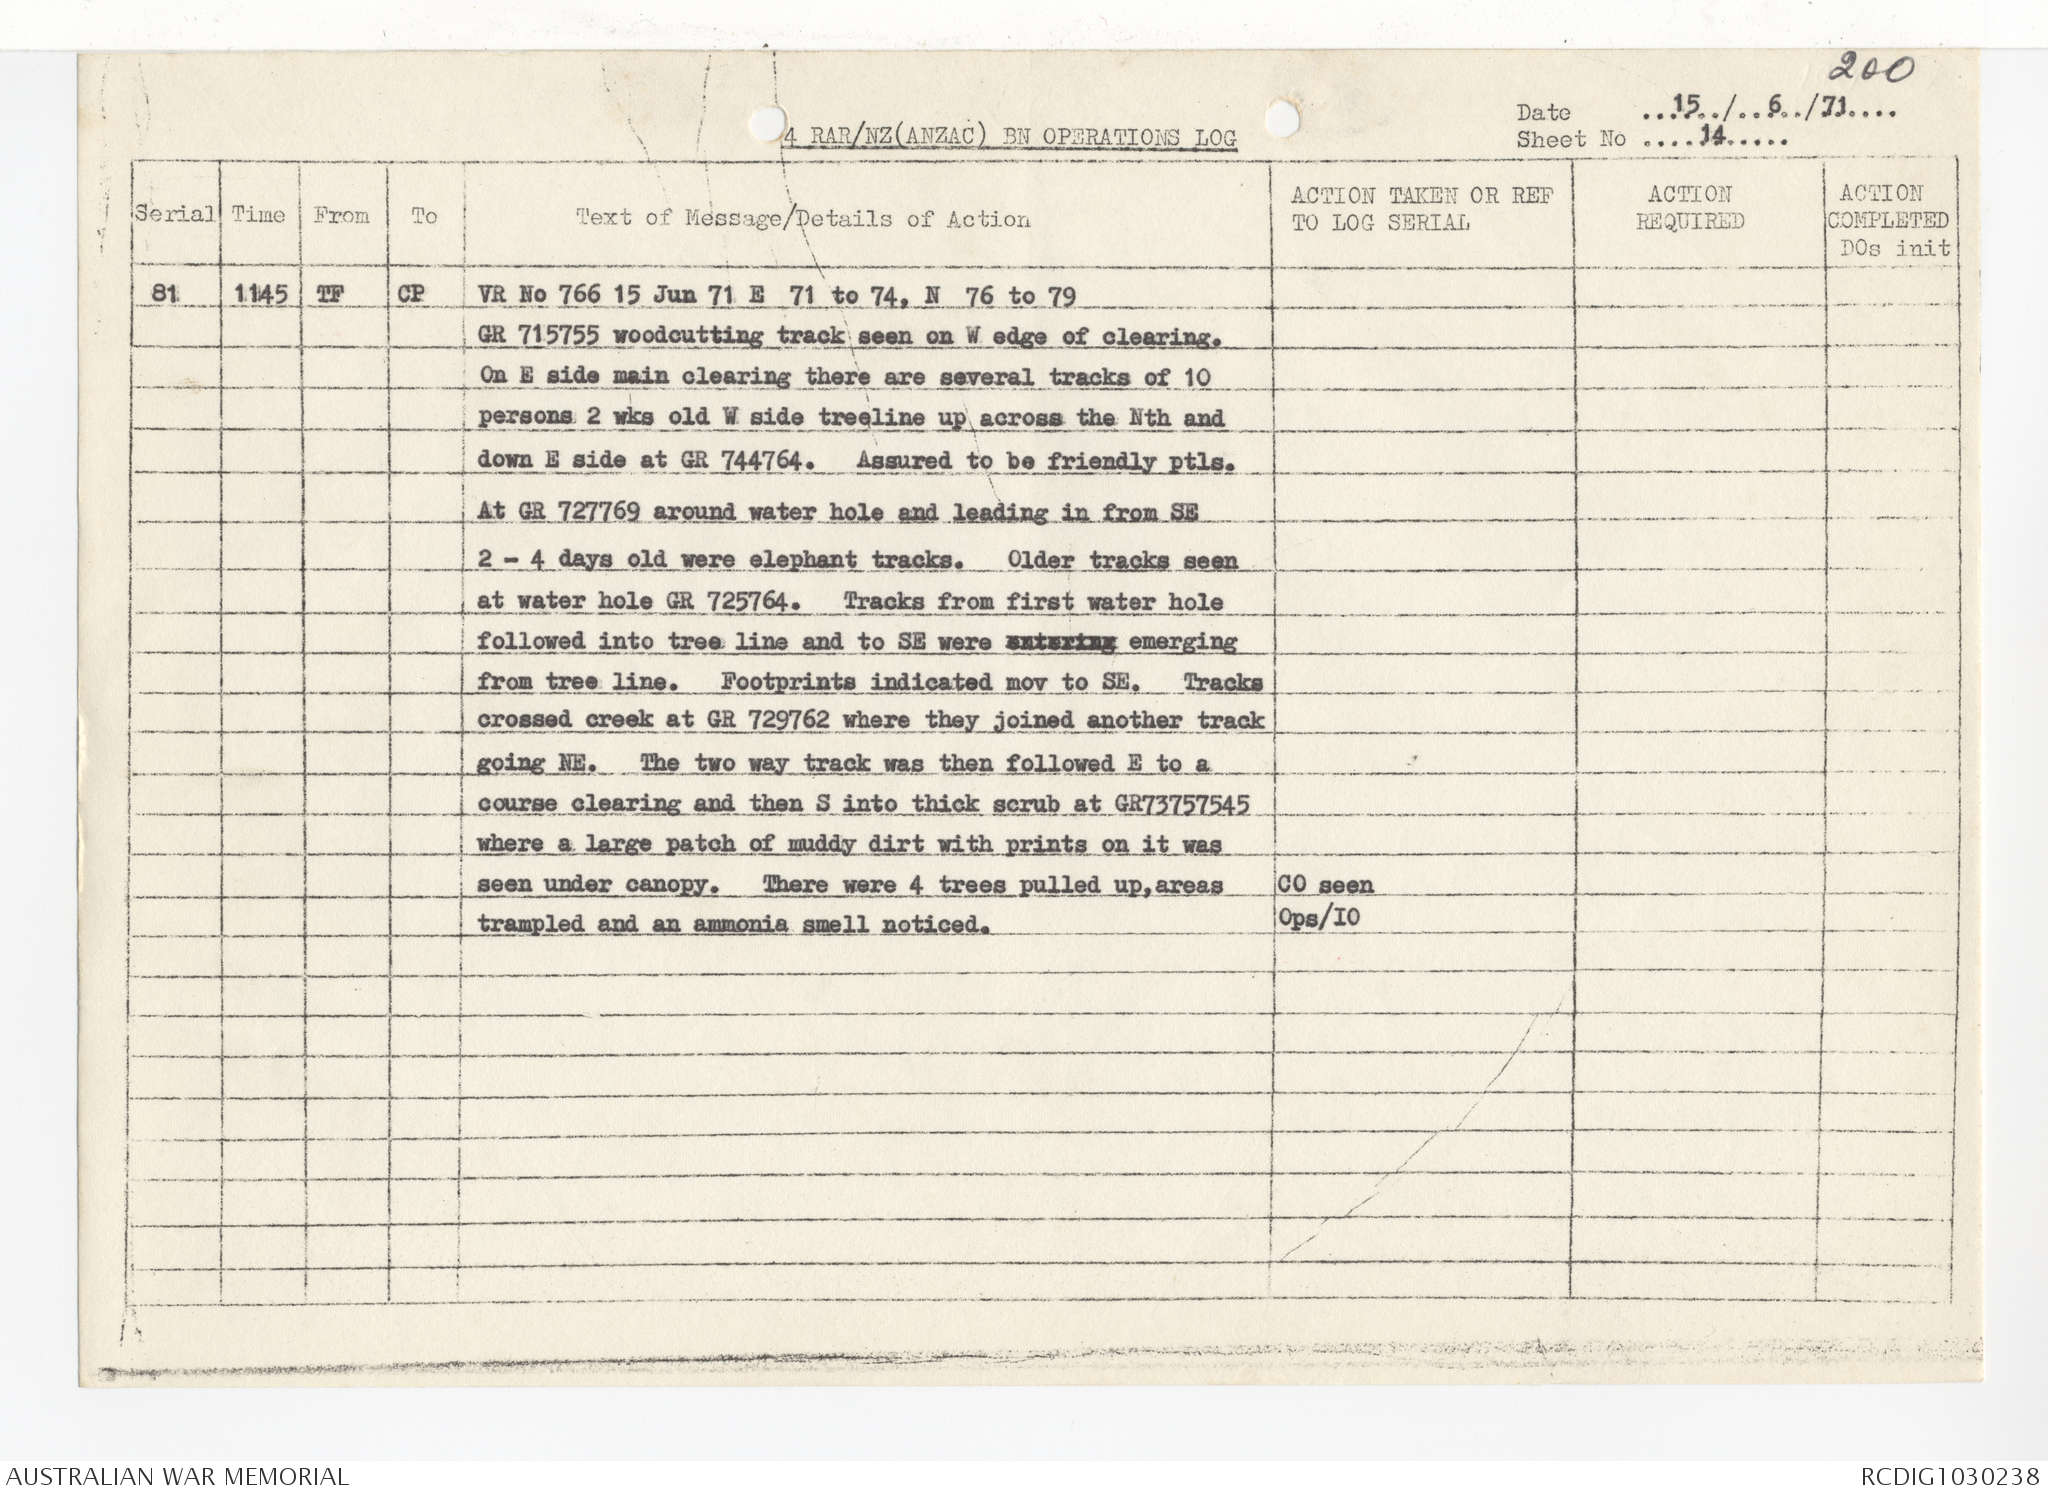 200
Date ...15../..6../71....
Sheet No ....14.....
4 RAR/NZ(ANZAC) BN OPERATIONS LOG
Serial Time From To Text of Message/Details of Action ACTION TAKEN OR REF TO LOG SERIAL ACTION REQUIRED ACTION COMPLETED DOs init
81 1145 TF CP VR No 766 15 Jun 71 E 71 to 74, N 76 to 79
GR 715755 woodcutting track seen on W edge of clearing.
On E side main clearing there are several tracks of 10
persons 2 wks old W side treeline up across the Nth and
down E side at GR 744764. Assured to be friendly ptls.
At GR 727769 around water hole and leading in from SE
2 - 4 days old were elephant tracks. Older tracks seen
at water hole GR 725764. Tracks from first water hole
followed into tree line and to SE were entering emerging
from tree line. Footprints indicated mov to SE. Tracks
crossed creek at GR 729762 where they joined another track
going NE. The two way track was then followed E to a
course clearing and then S into thick scrub at GR73757545
where a large patch of muddy dirt with prints on it was
seen under canopy. There were 4 trees pulled up,areas CO seen
trampled and an ammonia smell noticed. Ops/IO
AUSTRALIAN WAR MEMORIAL RCDIG1030238